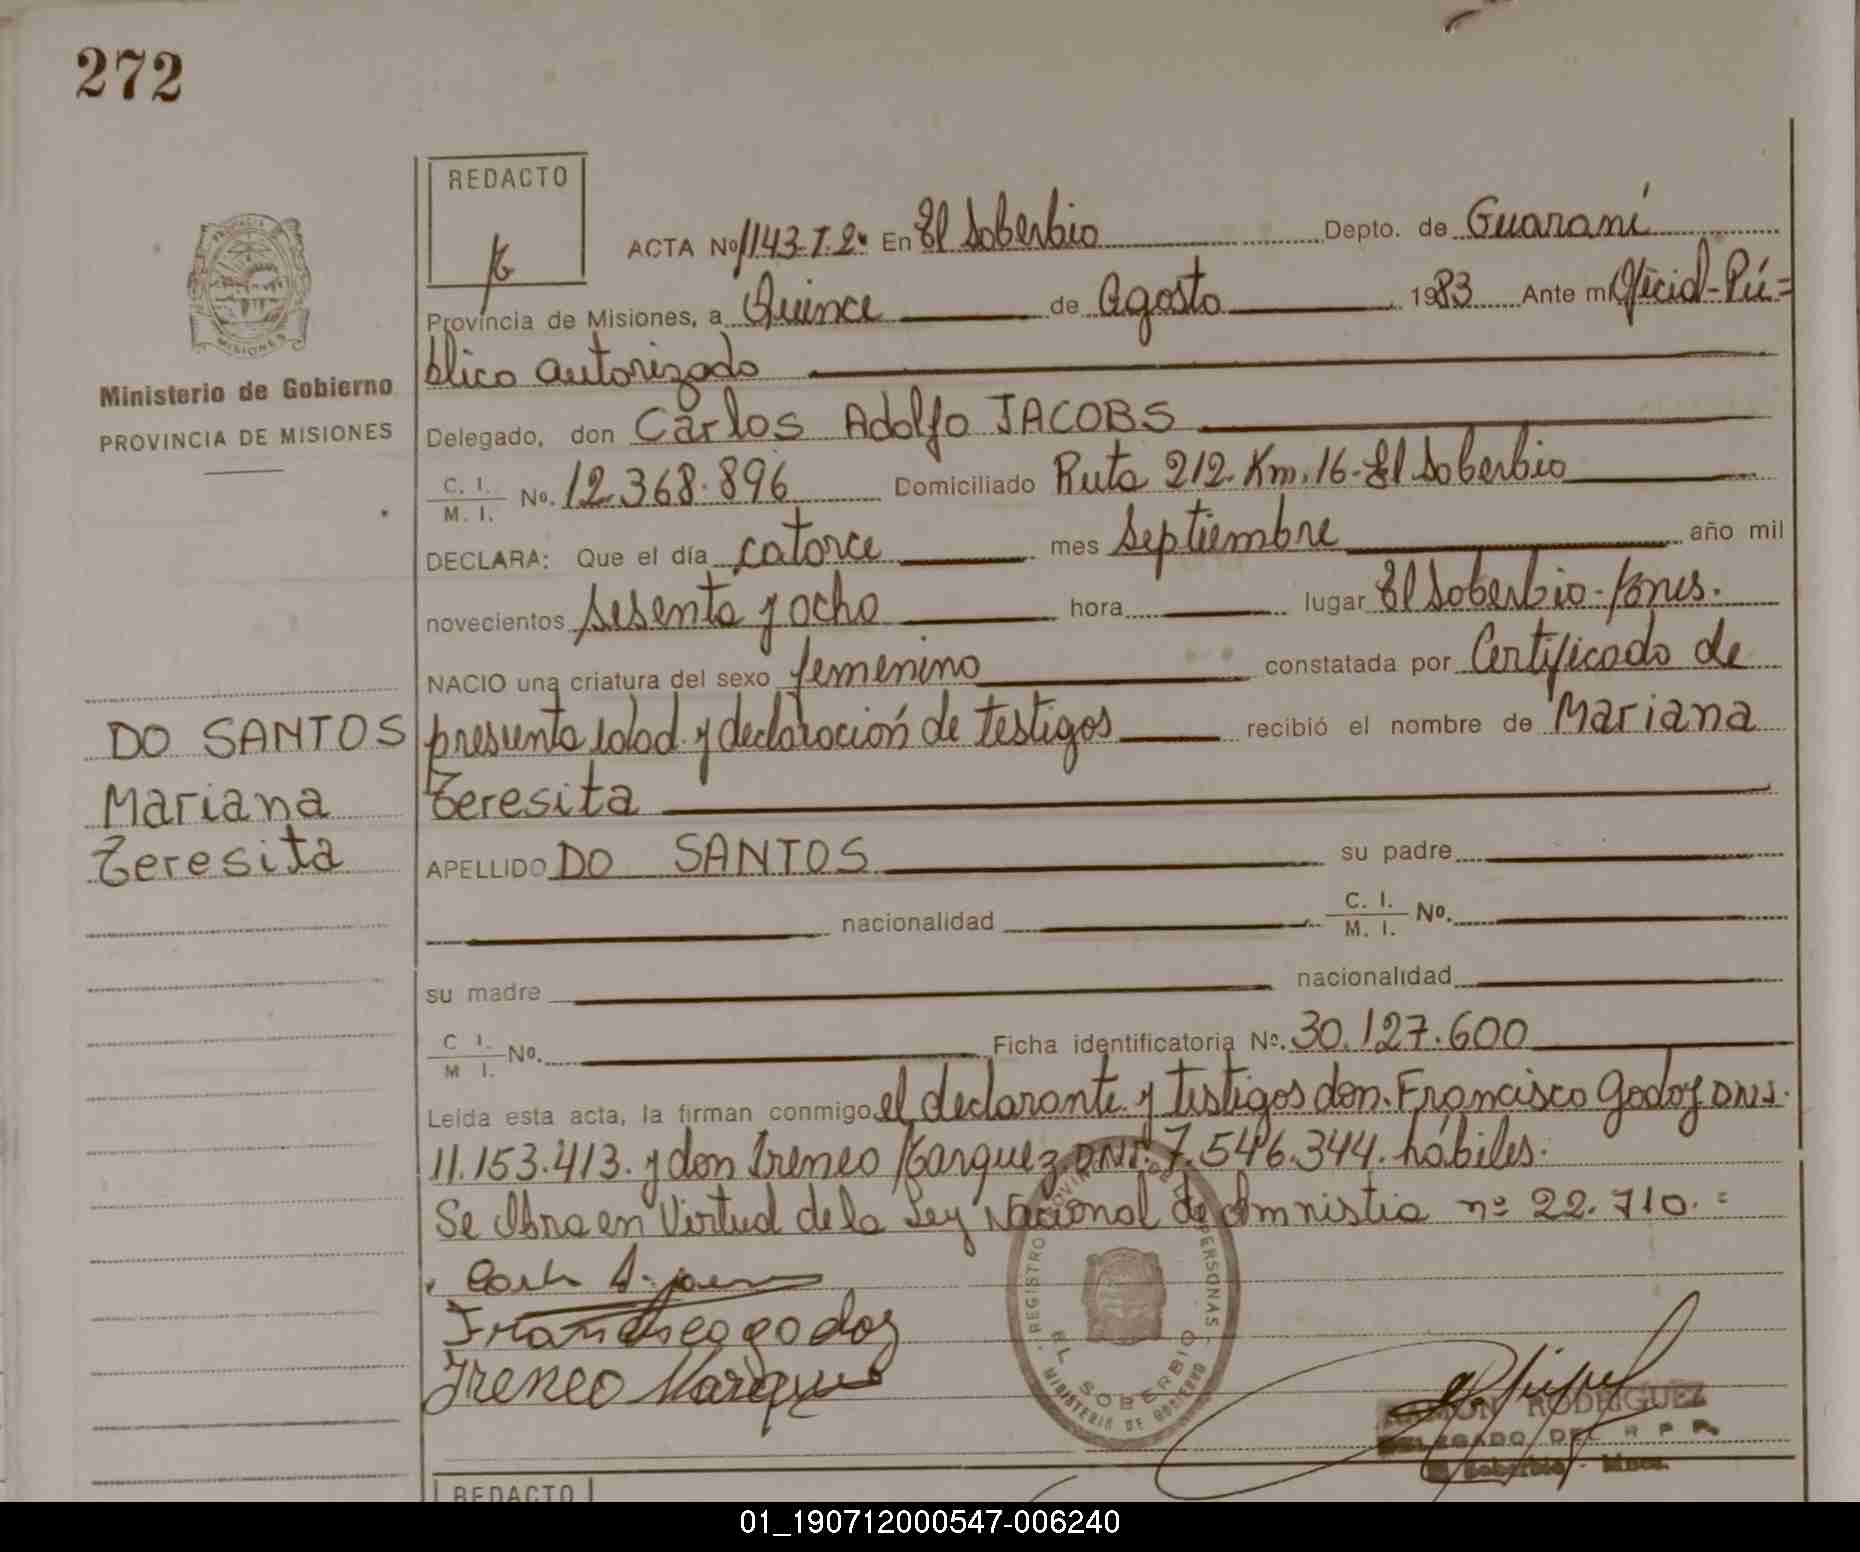 272
REDACTO
PROVINCIA
MISIONES
Ministerio de Gobierno
PROVINCIA DE MISIONES
ACTA No 1143-T.2. En El Soberbio Depto. de Guaraní
Provincia de Misiones, a Quince de Agosto 1983 Ante mi Oficial-Pú=
blico autorizado
Delegado, don Carlos Adolfo JACOBS
C. I. M. I. No. 12.368.896 Domiciliado Ruta 212. Km. 16-El Soberbio
DECLARA: Que el día catorce mes Septiembre año mil
novecientos sesenta y ocho hora lugar El Soberbio-Mnes.
NACIO una criatura del sexo femenino constatada por Certificado de
presunta edad y declaración de testigos recibió el nombre de Mariana
Teresita
DO SANTOS
Mariana
Teresita
APELLIDO DO SANTOS su padre
nacionalidad C. I. M. I. No.
su madre nacionalidad
C I. M I. No. Ficha identificatoria No. 30.127.600
Leída esta acta, la firman conmigo el declarante y testigos don. Francisco Godoy DNI.
11.153.413. y don Ireneo Marquez DNI. 7.546.344. hábiles.
Se Obra en Virtud de la Ley Nacional de Amnistia nº 22.710.=
Francisco godoy
Ireneo Marquez
REGISTRO PROVINCIAL DE LAS PERSONAS
EL SOBERBIO
MINISTERIO DE GOBIERNO
RAMON RODRIGUEZ
DELEGADO DEL R P P
El Soberbio - Mnes.
REDACTO
01_190712000547-006240